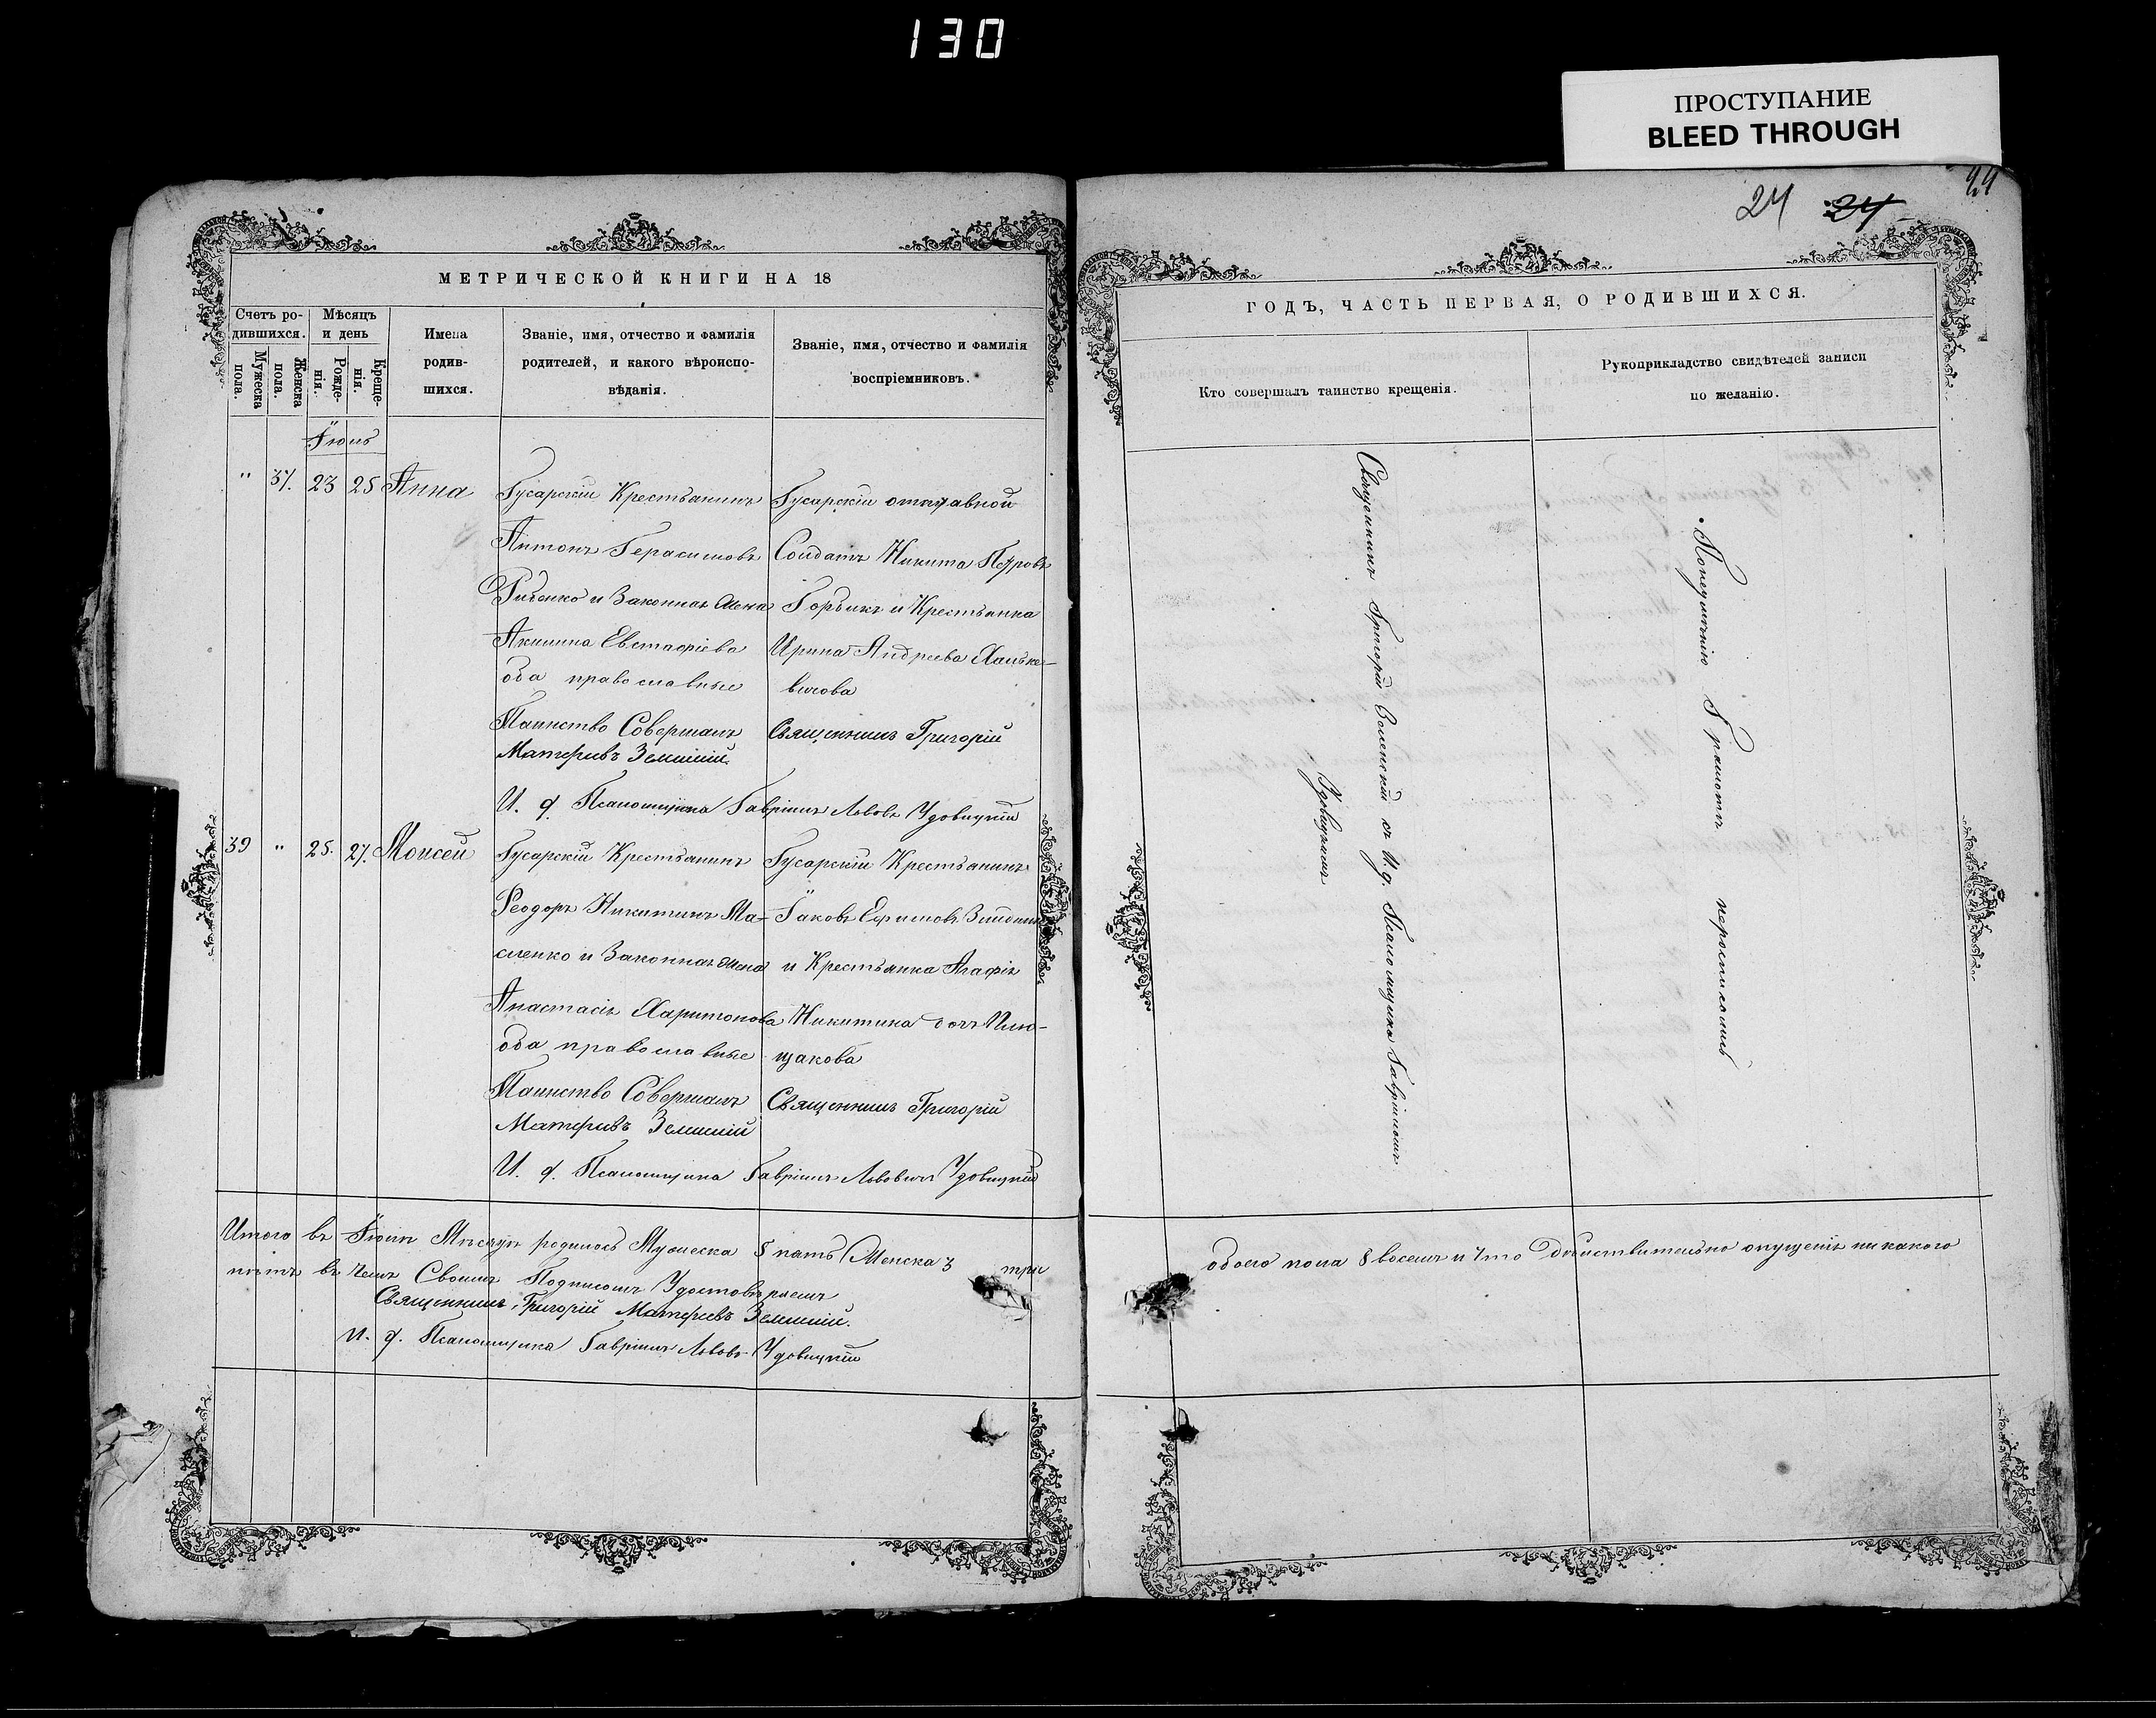 130
ПРОСТУПАНИЕ
BLEED THROUGH
24 24
44
МЕТРИЧЕСКОЙ КНИГИ НА 18
Счетъ родившихся.
Мѣсяцъ и день
Имена родив-
шихся.
Званіе, имя, отчество и фамилія
родителей, и какого вѣроиспо-
вѣданія.
Званіе, имя, отчество и фамилія
воспріемниковъ.
Мужеска пола.
Женска пола.
Рожде-
нія.
Креще-
нія.
Іюнь
" 37. 23 25 Анна
Гусарскій Крестьянинъ
Антонъ Герасимовъ
и Законная Жена
Акилина Евстафіева
оба православные
Гусарскій отставной
Солдатъ Никита Петровъ
и Крестьянка
Ирина Андреева
Таинство Совершалъ Священникъ Григорій
Матфеевъ
И. д. Псаломщика Гавріилъ Львовъ Удовицкій
39 " 25. 27. Моисей
Гусарскій Крестьянинъ
Ѳеодоръ Никитинъ Ма-
сленко и Законная Жена
Анастасія Харитонова
оба православные
Гусарскій Крестьянинъ
Іаковъ Ефимовъ
и Крестьянка Агафія
Никитина дочь Плю-
щакова
Таинство Совершалъ Священникъ Григорій
Матфеевъ
И. д. Псаломщика Гавріилъ Львовичъ Удовицкій
Итого въ Іюнѣ Мѣсяцѣ родилось Мужеска 5 пять Женска 3 три
нѣтъ въ чемъ Своимъ Подписомъ Удостовѣряемъ
Священникъ Григорій Матфеевъ
И. д. Псаломщика Гавріилъ Львовъ Удовицкій
ГОДЪ, ЧАСТЬ ПЕРВАЯ, О РОДИВШИХСЯ.
Кто совершалъ таинство крещенія.
Рукоприкладство свидѣтелей записи
по желанію.
Священникъ Григорій съ И. д. Псаломщика Гавріиломъ
Удовицкимъ
По неумѣнію Грамотѣ неросписались
обоего пола 8 восемь и что дѣйствительно опущенія никакого